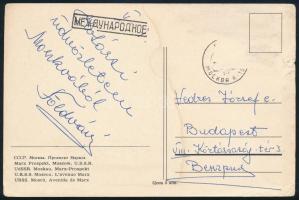 МЕЖДУНАРОДНОЕ
üdvözlettem
Moszkvából
Földvári
МОСКВА
Vedres József e.
Budapest
VIII. Köztársaság tér 3
Венгрия
СССР. Москва. Проспект Маркса
Marx Prospekt, Moscow, U.S.S.R.
UdSSR. Moskau, Marx-Prospekt
U.R.S.S. Moscou. L'avenue Marx
URSS. Moscú. Avenida de Marx